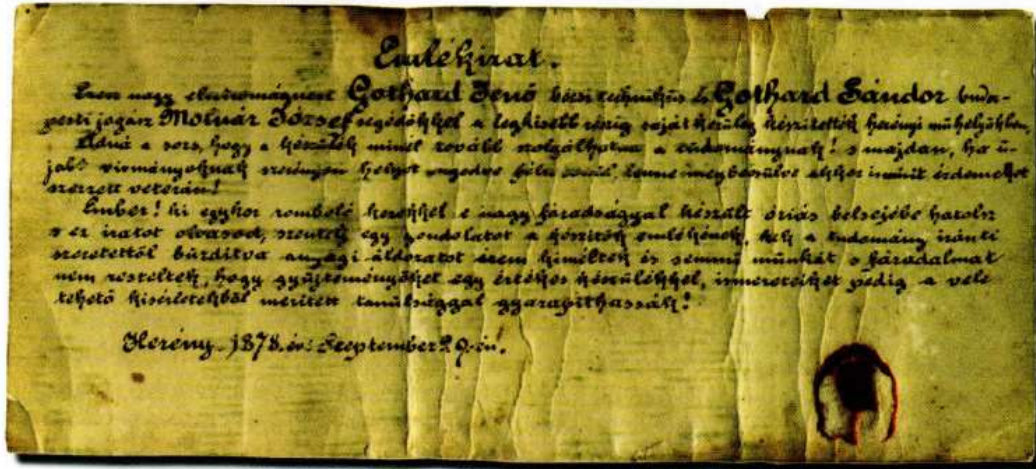 Emlékirat.
Ezen nagy electromágnest Gothard Jenő bécsi technikus és Gothard Sándor buda-
pesti jogász Molnár József segédökkel a legkisebb részig saját kezűleg készítették herényi műhelyökben.
Adná a sors, hogy a készülék minél tovább szolgálhatna a tudománynak! s majdan, ha ú-
jabb vívmányoknak szerényen helyet engedve félre lenne megbecsülve akkor is mint érdemeket
szerzett veterán!
Ember! ki egykor romboló kezekkel e nagy fáradsággal készült óriás belsejébe hatolsz
s ez iratot olvasod, szentelj egy gondolatot a készítők emlékének, kik a tudomány iránti
szeretettől buzdítva anyagi áldozatot nem kíméltek és semmi munkát s fáradalmat
nem resteltek, hogy gyűjteményöket egy értékes készülékkel, ismereteiket pedig a vele
tehető kisérletekből merített tanulsággal gyarapíthassák!
Herény, 1878. évi Szeptember 29-én.